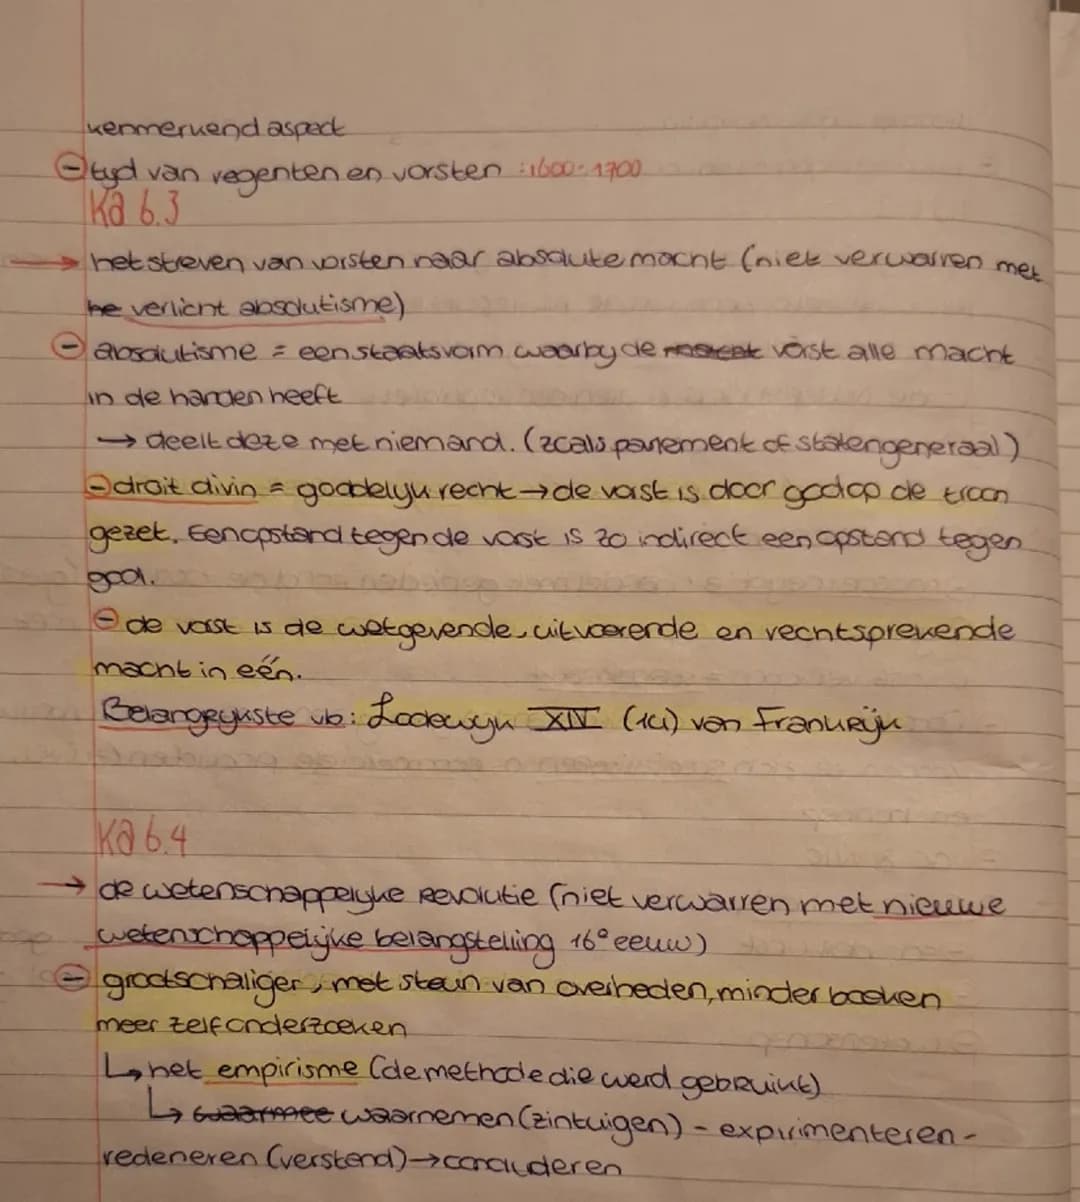 kenmerkend aspect
⊖ tyd van regenten en vorsten : 1600-1700
Ka 6.3
→ het streven van vorsten naar absolute macht (niet verwarren met
he verlicht absolutisme)
⊖ absolutisme = een staatsvorm waarby de vorst alle macht
in de handen heeft
→ deelt deze met niemand. (zoals parlement of statengeneraal)
⊖ droit divin = goddelyk recht → de vorst is door god op de troon
gezet. Een opstand tegen de vorst is zo indirect een opstand tegen
god.
⊖ de vorst is de wetgevende, uitvoerende en rechtsprekende
macht in één.
Belangrykste vb: Lodewyk XIV (14) van Frankrijk
Ka 6.4
→ de wetenschappelyke Revolutie (niet verwarren met nieuwe
wetenschappelijke belangstelling 16e eeuw)
⊖ grootschaliger, met steun van overheden, minder boeken
meer zelf onderzoeken
↳ het empirisme (de methode die werd gebruikt)
↳ waarmee waarnemen (zintuigen) - expirimenteren -
redeneren (verstand) → concluderen